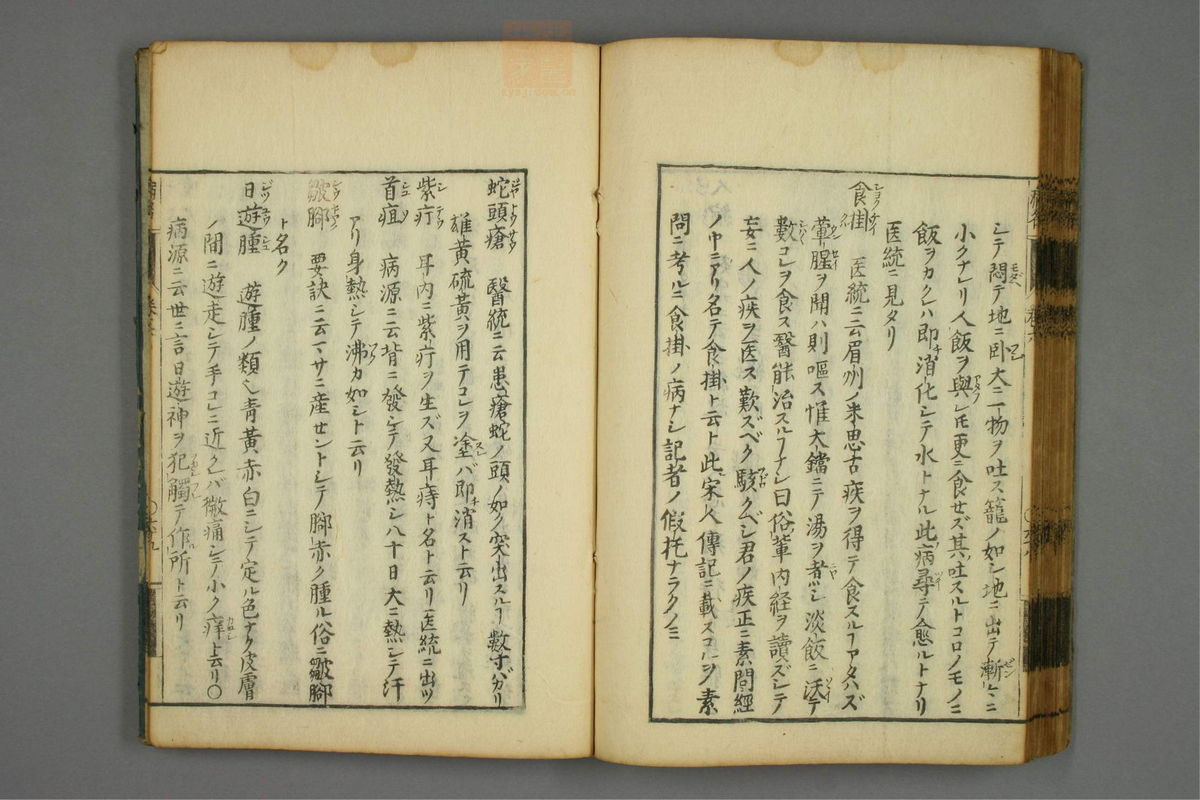 シテ悶テ地ニ卧大ニ一物ヲ吐ス籠ノ如シ地ニ出テ漸々ニ
小クナレリ人飯ヲ與レ𪜈更ニ食セズ其吐スルトコロノモノニ
飯ヲカクレハ即消化シテ水トナル此病尋テ愈ルトナリ
医統ニ見タリ
食掛 医統ニ云眉州ノ朱思古疾ヲ得テ食スルヿアタハズ
葷腥ヲ聞ハ則嘔ス惟大鐺ニテ湯ヲ煮シ淡飯ニ沃テ
數コレヲ食ス醫能治スルヿナシ曰俗輩内経ヲ讀ズシテ
妄ニ人ノ疾ヲ医ス歎ズベク駭クベシ君ノ疾正ニ素問經
ノ中ニアリ名テ食掛ト云ト此宋人傳記ニ載スコレヲ素
問ニ考ルニ食掛ノ病ナシ記者ノ假托ナラクノミ
蛇頭瘡 醫統ニ云患瘡蛇ノ頭ノ如ク突出スルヿ數寸バカリ
雄黄硫黄ヲ用テコレヲ塗バ即消スト云リ
紫疔 耳内ニ紫疔ヲ生ズ又耳痔ト名ト云リ医統ニ出ツ
首疽 病源ニ云背ニ發シテ發熱シ八十日大ニ熱シテ汗
アリ身熱シテ沸カ如シト云リ
皺脚 要訣ニ云マサニ産セントシテ脚赤ク腫ル俗ニ皺脚
ト名ク
日遊腫 遊腫ノ類也青黄赤白ニシテ定ル色ナク皮膚
ノ間ニ遊走シテ手コレニ近クレバ微痛シテ小ク痒ト云リ〇
病源ニ云世ニ言日遊神ヲ犯觸テ作所ト云リ